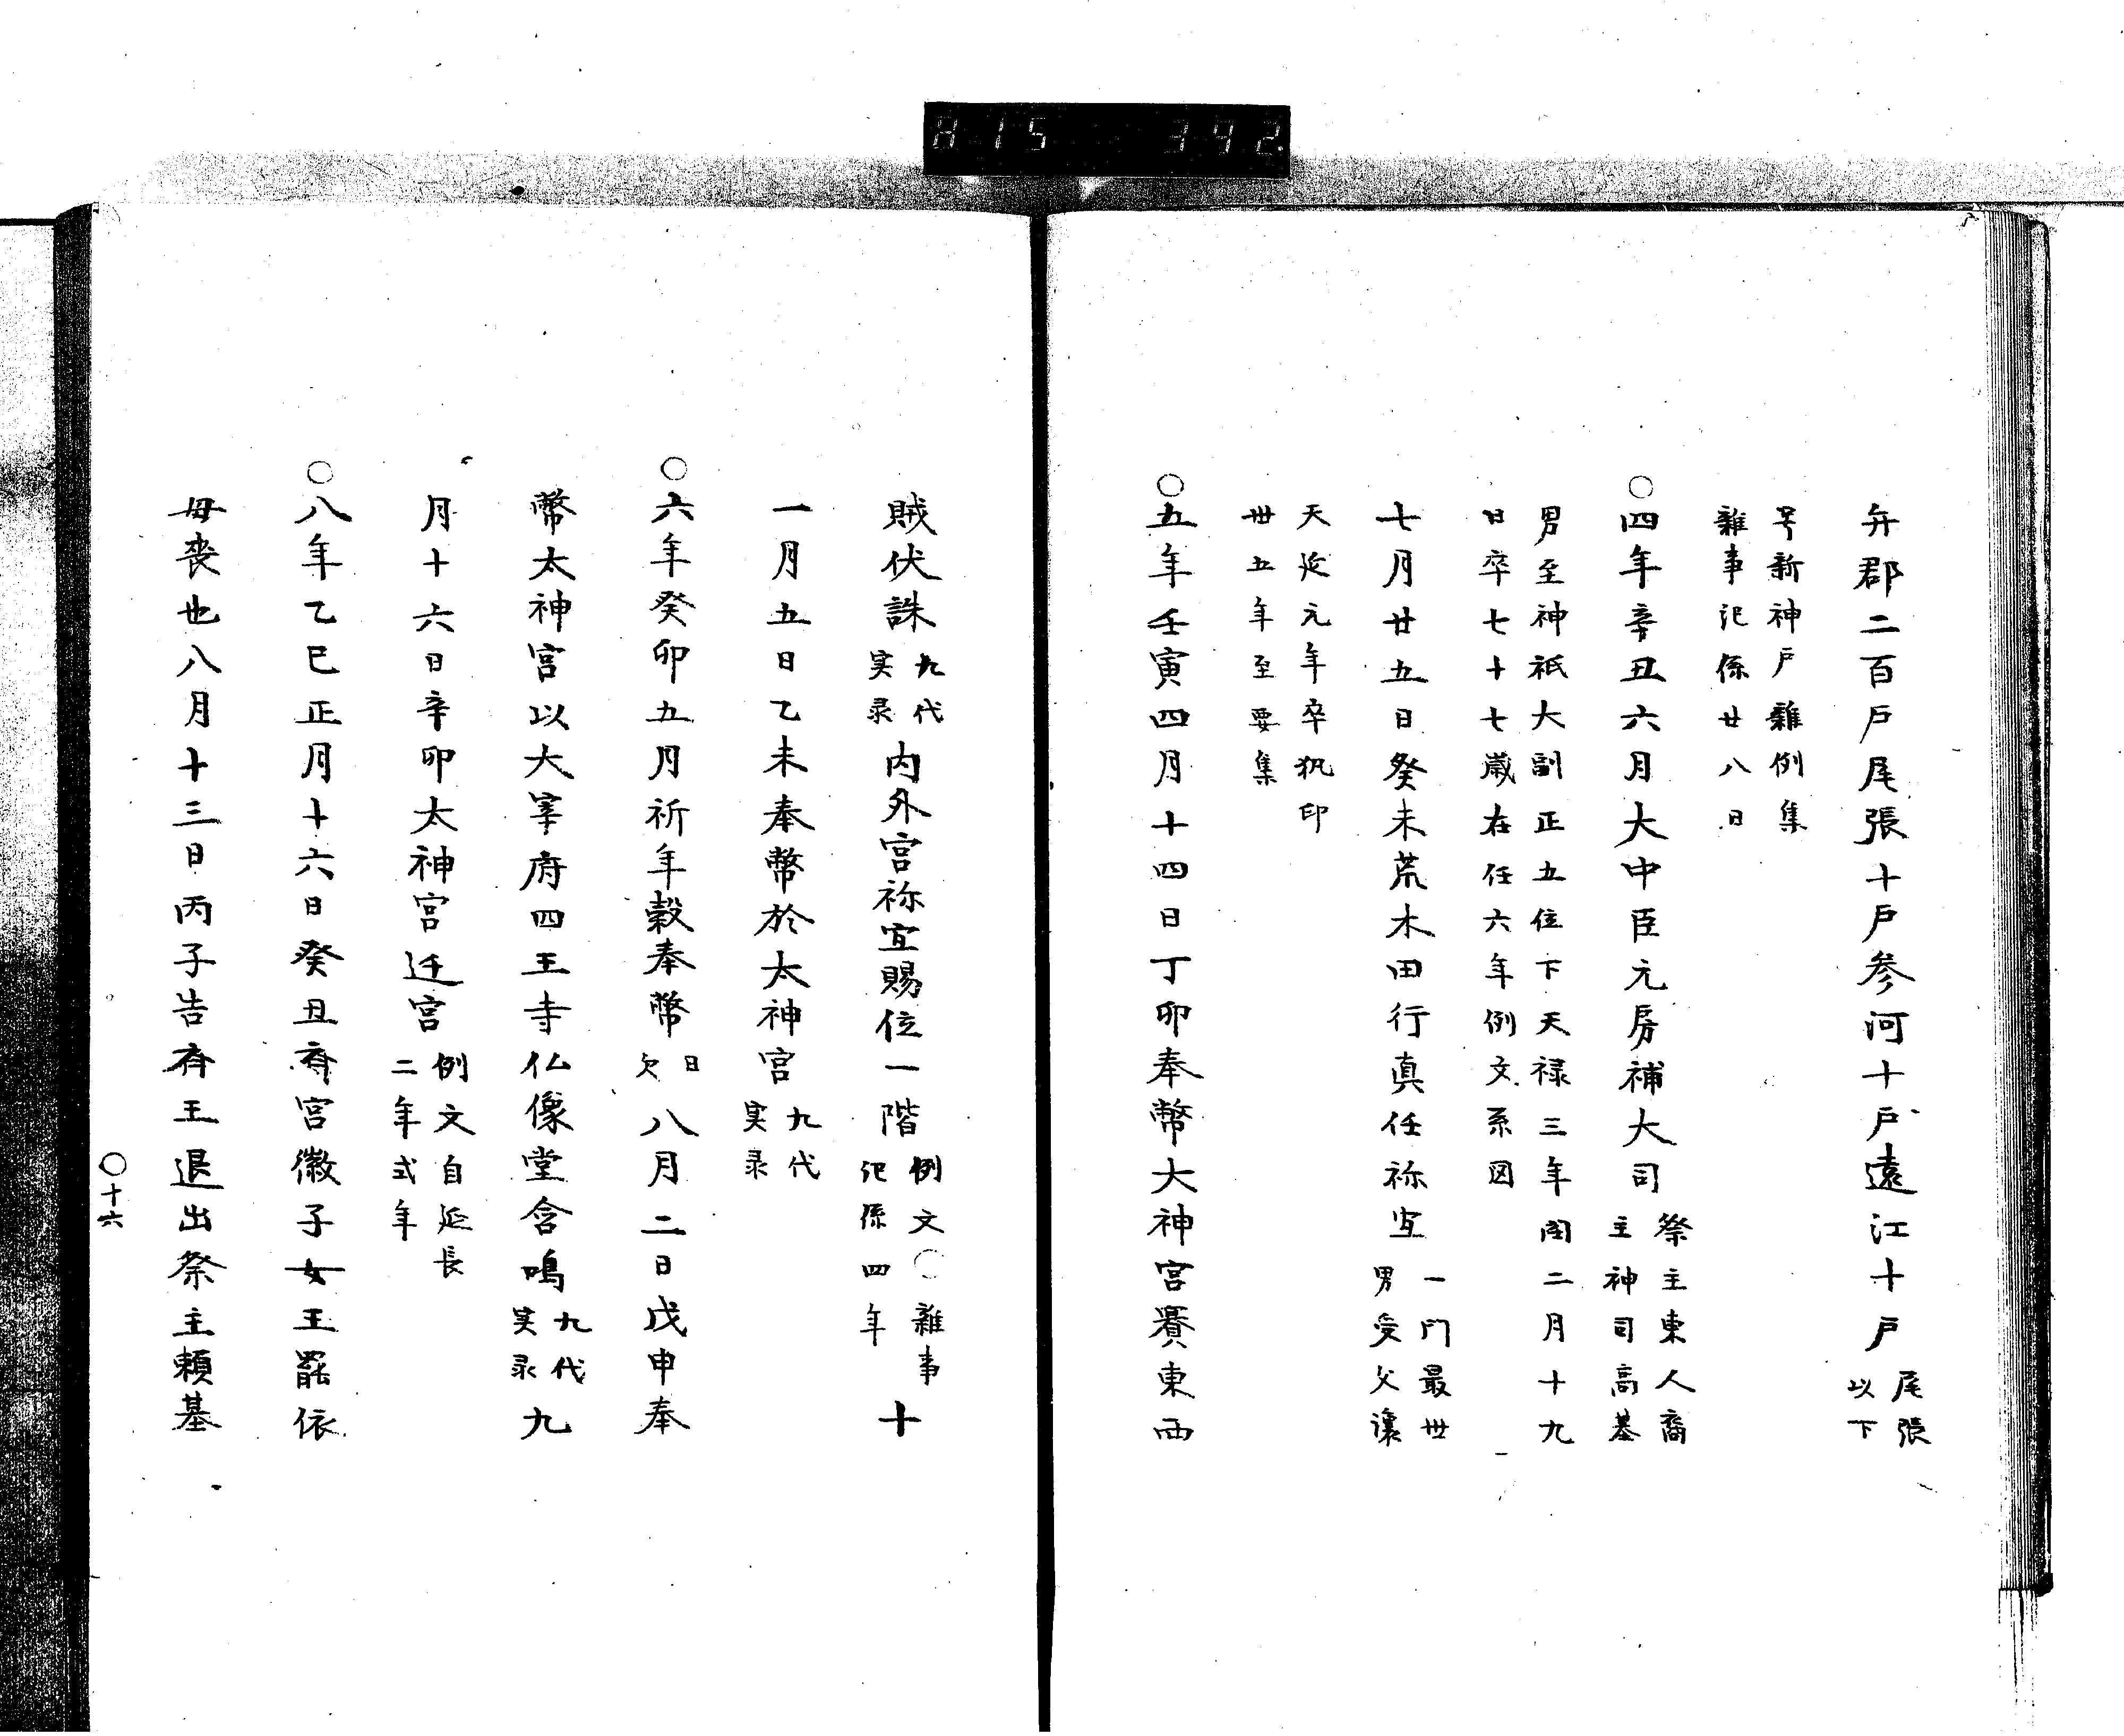 H15 342.
弁郡二百戸尾張十戸参河十戸遠江十戸 尾張
以下
号新神戸雜例集
雜事記係廿八日
○四年辛丑六月大中臣元房補大司 祭主東人裔
主神司高基
男至神祇大副正五位下天禄三年閏二月十九
日卒七十七歳在任六年例文系図
七月廿五日癸未荒木田行真任祢宜 一門最世
男受父讓
天延元年卒執印
世五年至要集
○五年壬寅四月十四日丁卯奉幣大神宮賽東西
賊伏誅 九代
実录
内外宮祢宜賜位一階 例文○雜事
記係四年
十
一月五日乙未奉幣於太神宮 九代
実录
○六年癸卯五月祈年穀奉幣 日
欠
八月二日戊申奉
幣太神宮以大宰府四王寺仏像堂含鳴 九代
実录
九
月十六日辛卯太神宮迁宮 例文自延長
二年式年
○八年乙巳正月十六日癸丑斉宮徽子女王罷依
母喪也八月十三日丙子告斉王退出祭主頼基
○十六